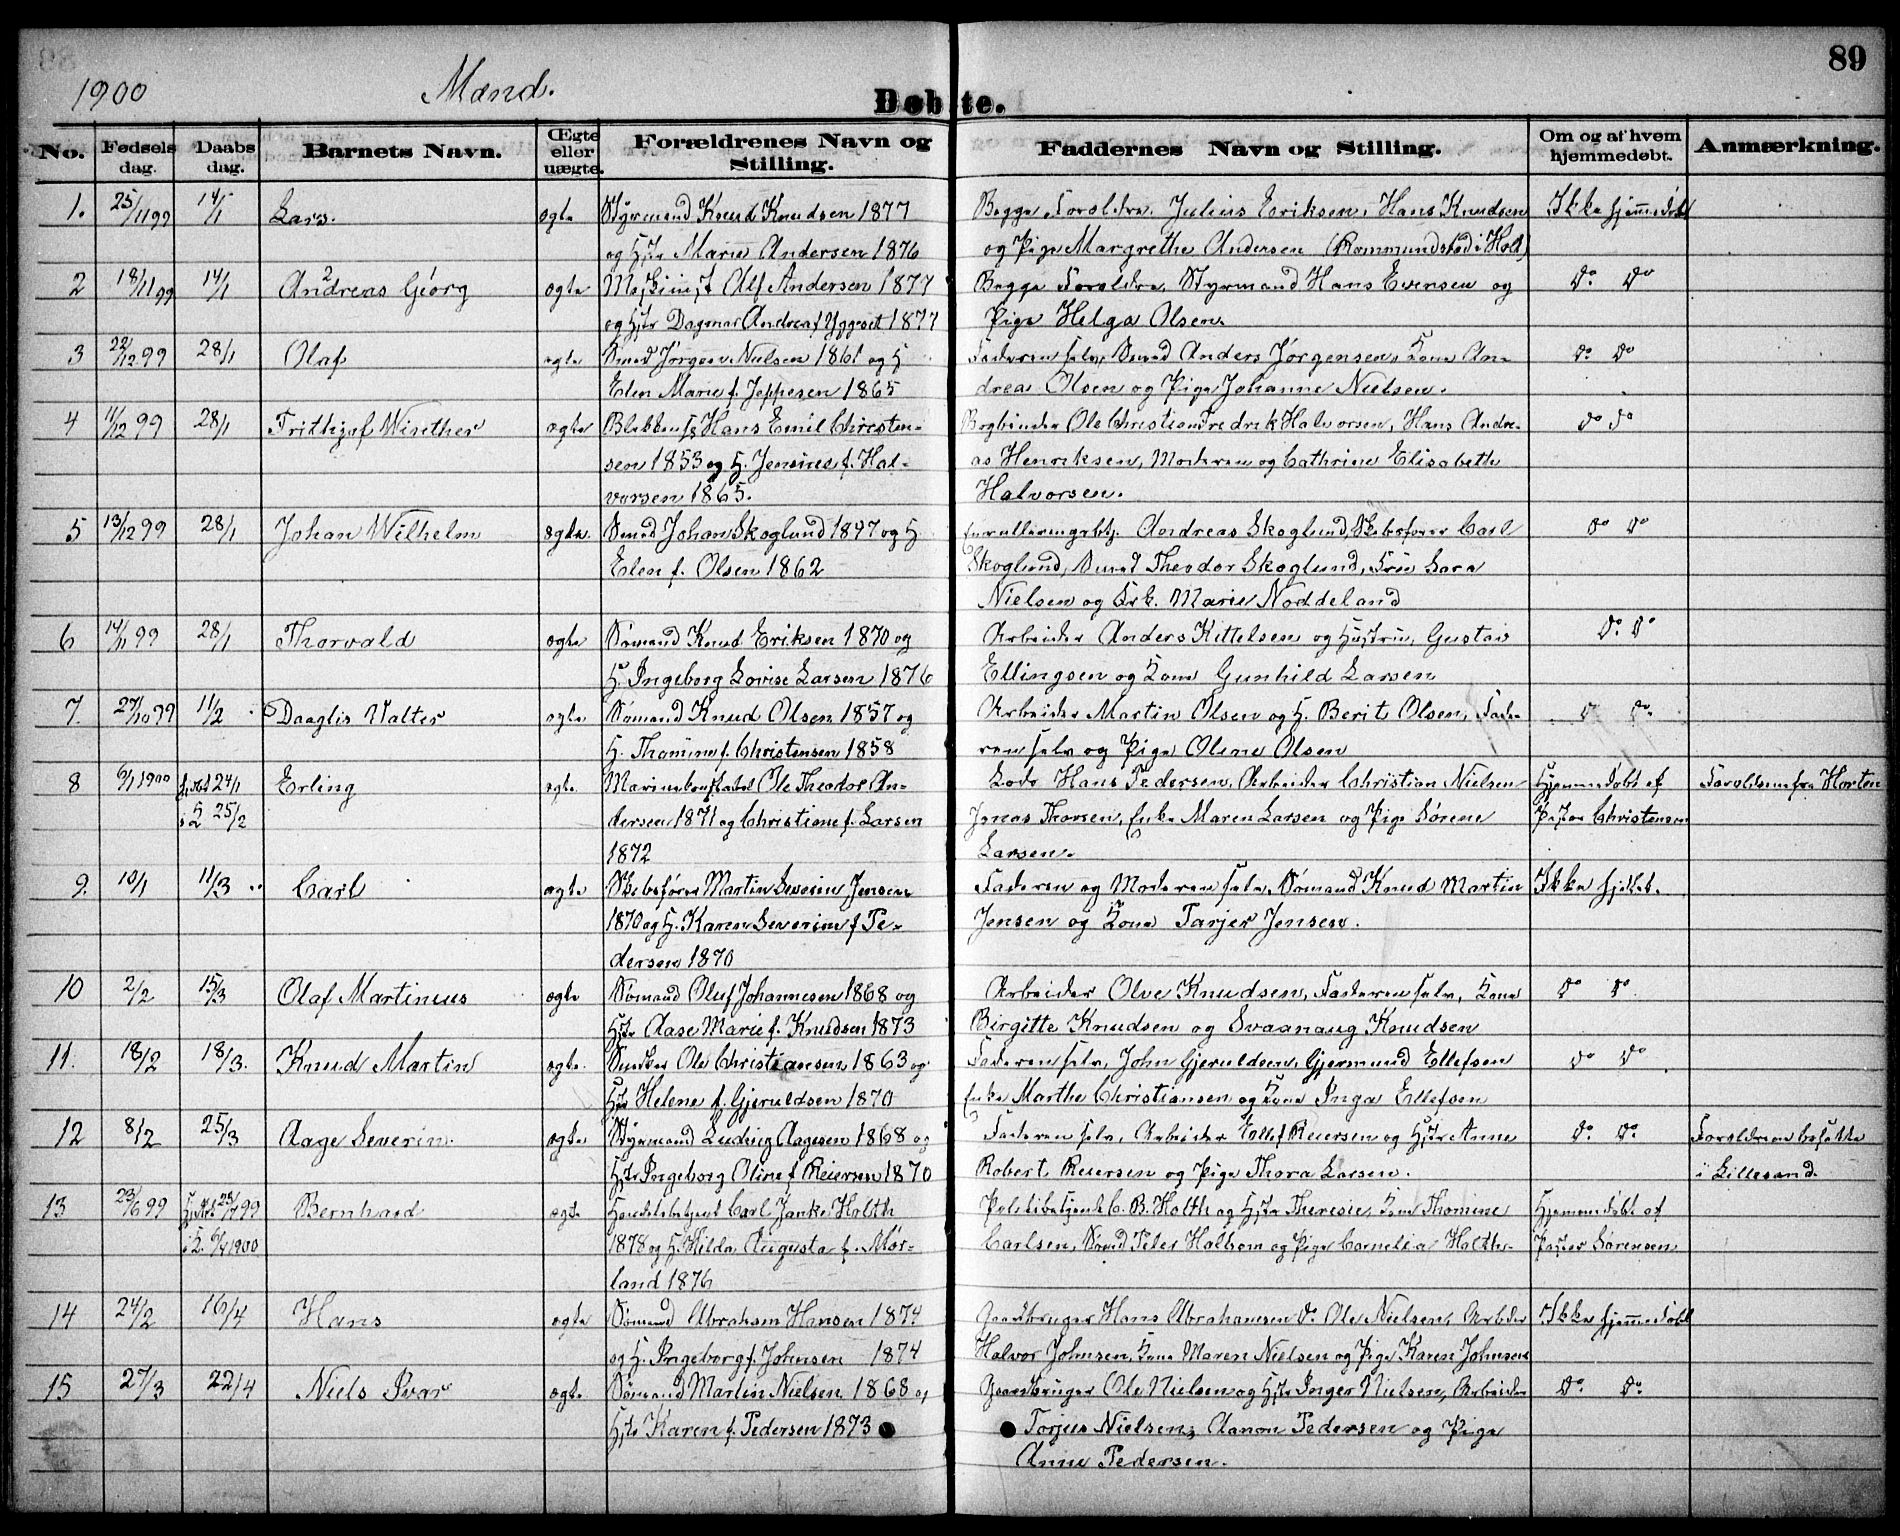 89
1900 Mænd.
Døbte.
No. Fødsels dag. Daabs dag. Barnets Navn. Ægte eller uægte. Forældrenes Navn og Stilling. Faddernes Navn og Stilling. Om og af hvem hjemmedøbt. Anmærkning.
1. 25/11 99 14/1 Lars. ægte Styrmand Knud Knudsen 1877 Begge Forældre. Julius Eriksen, Hans Knudsen Ikke hjemmedøbt
og Hstr Marie Andersen 1876 og Pige Margrethe Andersen (Rommundstad i Holt)
2 18/11 99 14/1 Andreas Géorg ægte Maskinist Alf Andersen 1877 Begge Forældre, Styrmand Hans Evensen og Do Do
og Hstr Dagmar Andrea f Yggeset 1877 Pige Helga Olsen.
3 22/12 99 28/1 Olaf ægte Smed Jörgen Nielsen 1861 og H Faderen selv, Smed Anders Jörgensen, Kone An- Do Do
Elen Marie f. Jeppesen 1865 drea Olsen og Pige Johanne Nielsen.
4 11/12 99 28/1 Frithjof Wisether ægte Hans Emil Christen- Bogbinder Ole Christian Fredrik Halvorsen, Hans Andre- Do Do
sen 1853 og H. Jensine f. Hal- as Henriksen, Moderen og Cathrine Elisabeth
vorsen 1865. Halvorsen.
5 13/12 99 28/1 Johan Wilhelm ægte. Smed Johan Skoglund 1847 og H Andreas Skoglund, Skibsfører Carl Do Do
Elen f. Olsen 1862 Skoglund, Smed Theodor Skoglund, Frue Sara
Nielsen og Frk. Marie Noddeland
6 14/11 99 28/1 Thorvald ægte Sømand Knud Eriksen 1870 og Arbeider Anders Kittelsen og Hustru, Gustav Do Do
H. Ingeborg Lovise Larsen 1876 Ellingsen og Kone Gunhild Larsen
7. 27/10 99 11/2 Daaglis Valter ægte Sømand Knud Olsen 1857 og Arbeider Martin Olsen og H. Berit Olsen, Fade- Do Do
H. Thomine f. Christensen 1858 ren selv og Pige Oline Olsen
8 6/1 1900 24/1 Erling ægte Ole Theodor An- Lods Hans Pedersen, Arbeider Christian Nielsen Hjemmedøbt af Forældrene fra Horten
25/2 dersen 1871 og Christiane f. Larsen Jonas Thorsen, Enke Maren Larsen og Pige Sörene Pastor Christensen
1872 Larsen.
9. 10/1 11/3 Carl ægte Skibsfører Martin Severin Jensen Faderen og Moderen selv, Sømand Knud Martin Ikke hjdøbt.
1870 og H. Karen Severine f Pe- Jensen og Kone Tarjer Jensen.
dersen 1870
10 2/2 15/3 Olaf Martinius ægte Sømand Oluf Johannesen 1868 og Arbeider Olve Knudsen, Faderen selv, Kone Do Do
Hstr Aase Marie f. Knudsen 1873 Birgitte Knudsen og Svaanaug Knudsen
11. 18/2 18/3. Knud Martin ægte. Ole Christiansen 1863 og Faderen selv, John Gjeruldsen, Gjermund Ellefsen Do Do
Hstr Helene f. Gjeruldsen 1870 Enke Marthe Christiansen og Kone Inga Ellefsen
12 8/2 25/3 Aage Severin. ægte Styrmand Ludvig Aagesen 1868 og Faderen selv, Arbeider Ellef Reiersen og Hstr Anne Do. Do. Forældrene bosatte
Hstr Ingeborg Oline f Reiersen 1870 Robert Reiersen og Pige Thora Larsen. i Lillesand.
13 23/6 99 99 Bernhard ægte Handelsbetjent Carl Janke Holth Politibetjent C. B. Holth og Hstr Theresie, Kone Thomine Hjemmedøbt af
1900 1878 og H. Hilda Augusta f. Mør- Carlsen, Smed Peter Holbom og Pige Cornelia Holth. Pastor Sörensen
land 1876
14 24/2 16/4 Hans ægte Sømand Abraham Hansen 1874 Gaardbruger Hans Abrahamsen Do Ole Nielsen, Arbeider Ikke hjemmedøbt
og H. Ingeborg f. Johnsen 1874 Halvor Johnsen, Kone Maren Nielsen og Pige Karen Johnsen
15 27/3 22/4 Niels Ivar ægte Sømand Martin Nielsen 1868 og Gaardbruger Ole Nielsen og Hstr Inger Nielsen, Arbeider Do. Do.
Hstr Karen f. Pedersen 1873 Torjus Nielsen, Aanon Pedersen og Pige
Anne Pedersen.